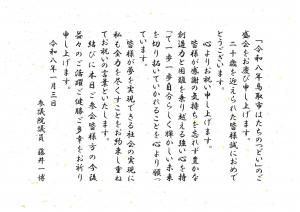 「令和八年鳥取市はたちのつどい」のご
盛会をお慶び申し上げます。
二十歳を迎えられた皆様誠におめで
とうございます。
心よりお祝い申し上げます。
皆様が感謝の気持ちを忘れず豊かな
創造力と困難を乗り越える強い心を持
って一歩一歩自分らしく輝かしい未来
を切り拓いていかれることを心より願っ
ています。
皆様が夢を実現できる社会の実現に
私も全力を尽くすことをお約束し重ね
てお祝いの言葉といたします。
結びに本日ご参会皆様方の今後
益々のご活躍ご健勝ご多幸をお祈り
申し上げます。
令和八年一月三日
参議院議員　藤井一博